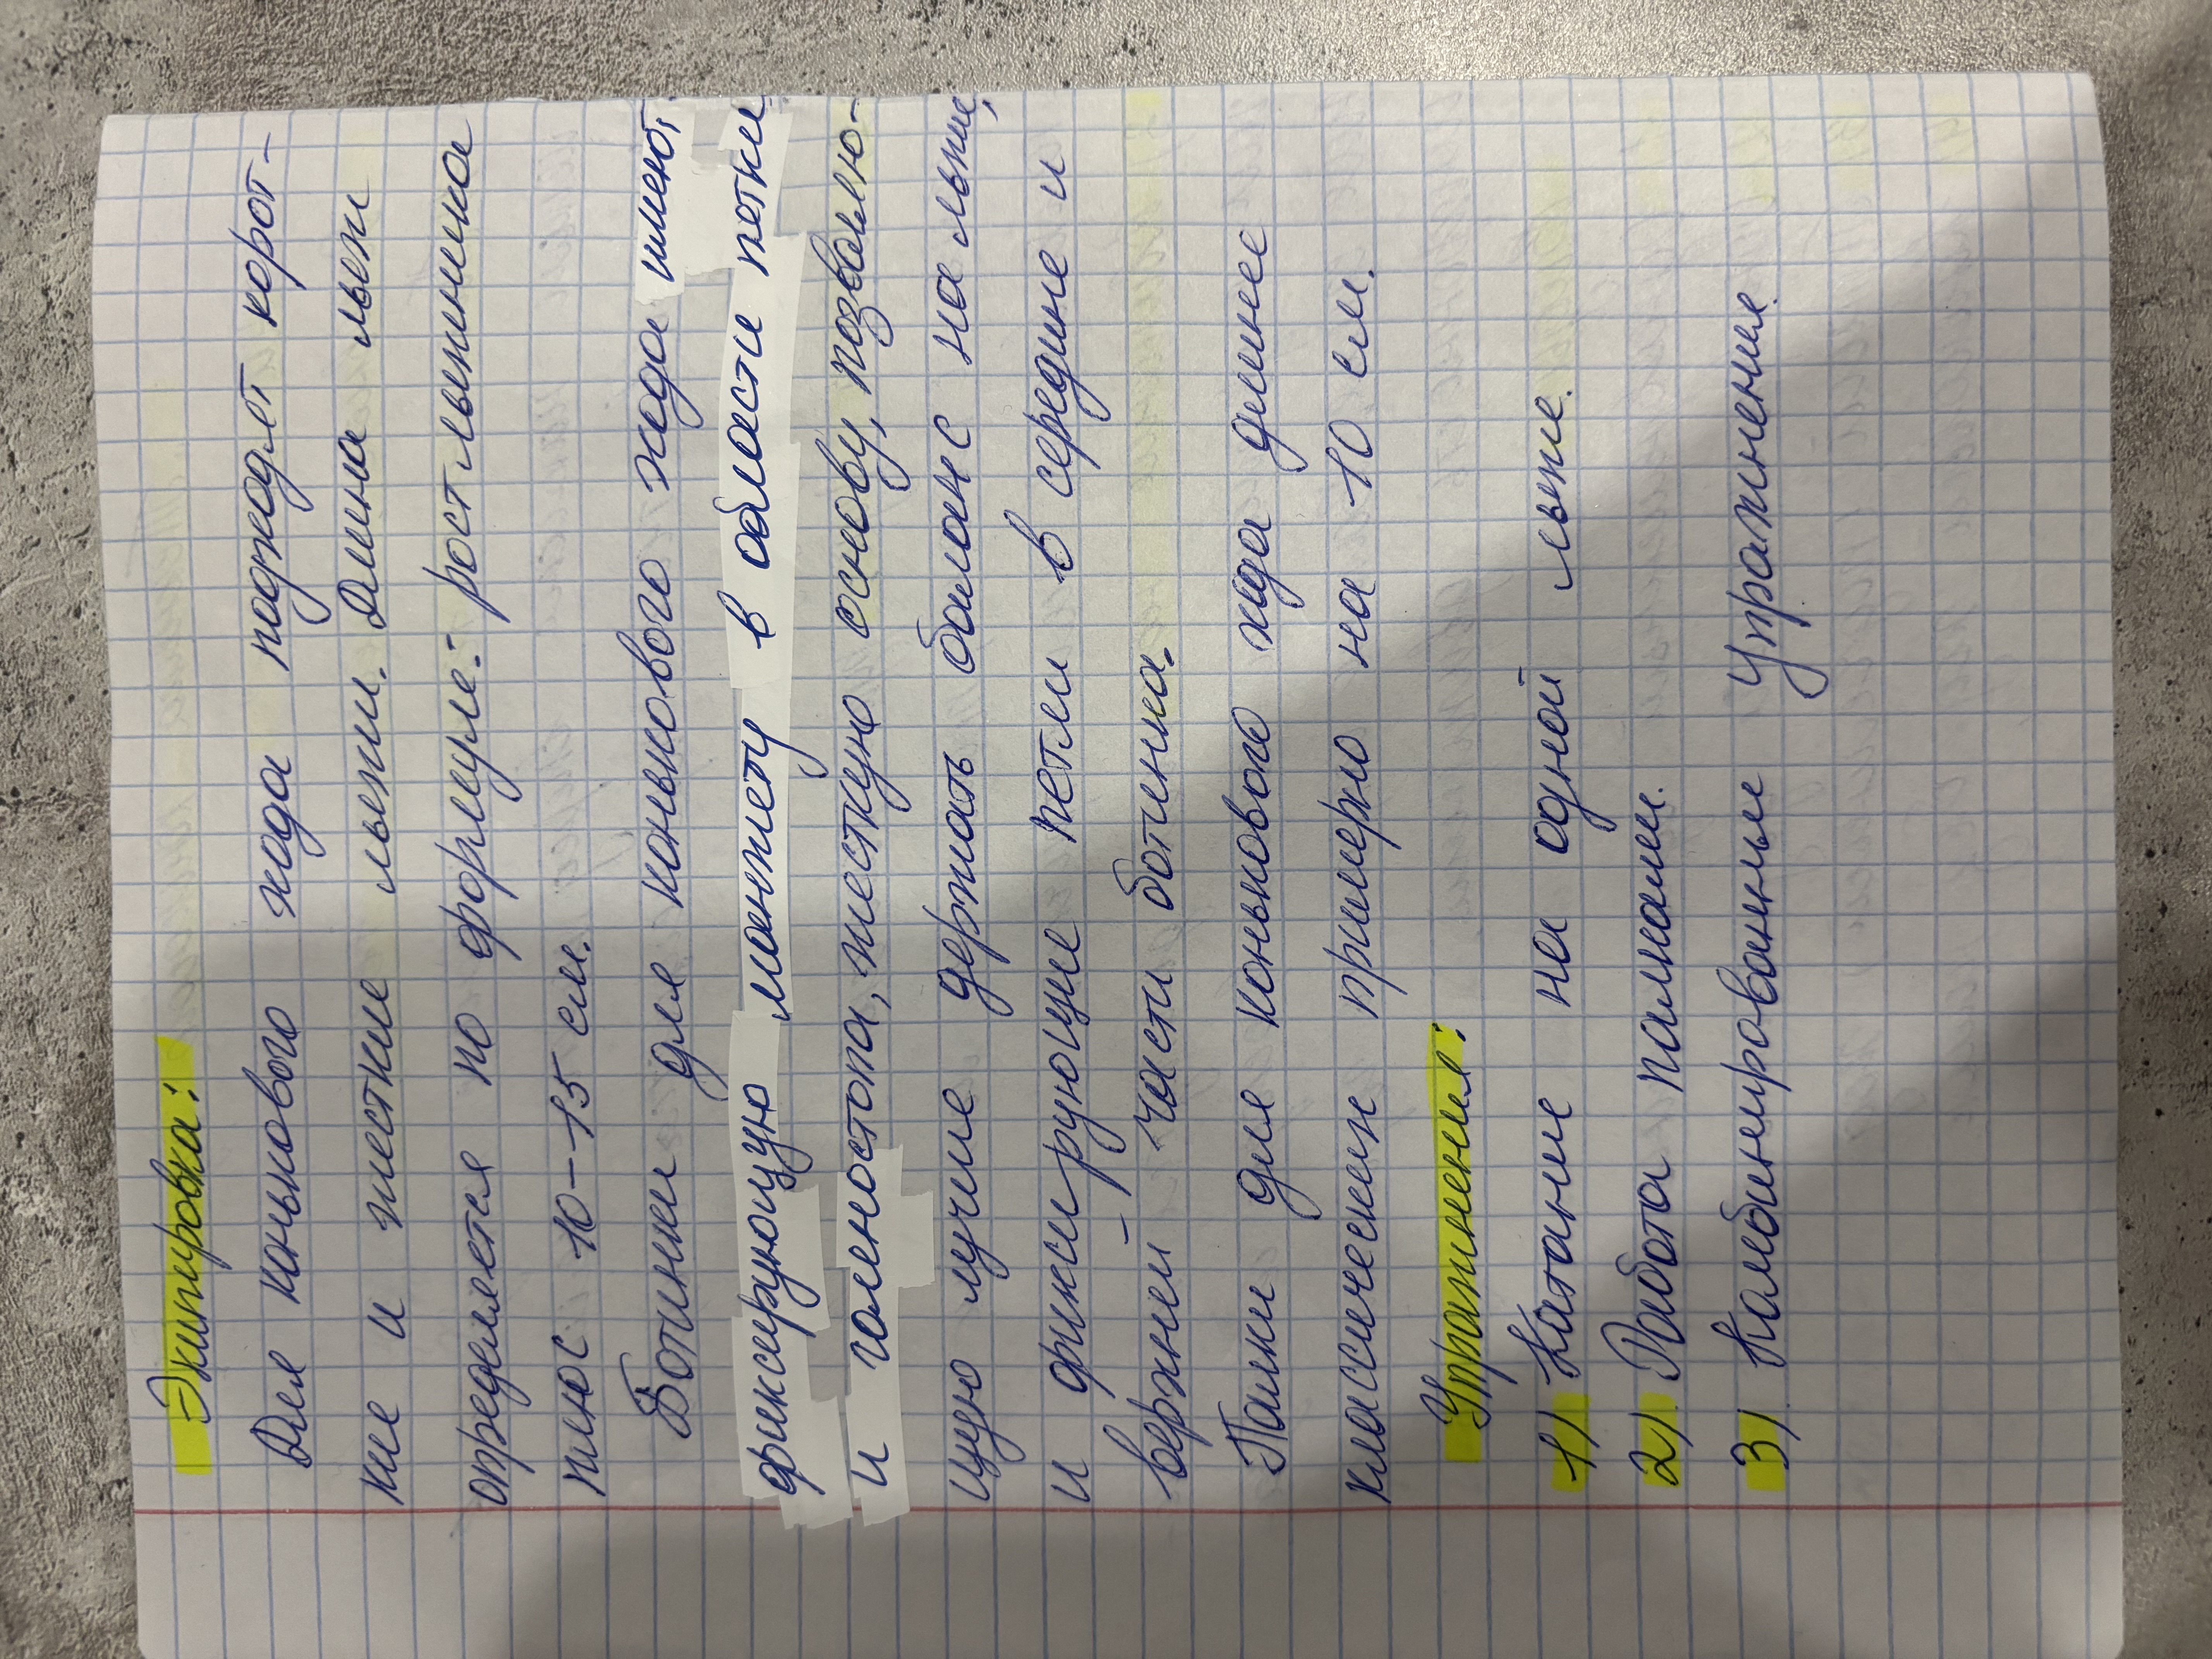 Экипировка:
Для конькового хода подходят корот-
кие и жесткие лыжи. Длина лыжи
определяется по формуле: рост лыжника
плюс 10-15 см.
Ботинки для конькового хода имеют
фиксирующую манжету в области пятки
и голеностопа, жесткую основу, позволяю-
щую лучше держать баланс на лыже,
и фиксирующие петли в середине и
верхней части ботинка.
Палки для конькового хода длиннее
классических примерно на 10 см.
Упражнения:
1) Катание на одной лыже.
2) Работа палками.
3) Комбинированные упражнения.